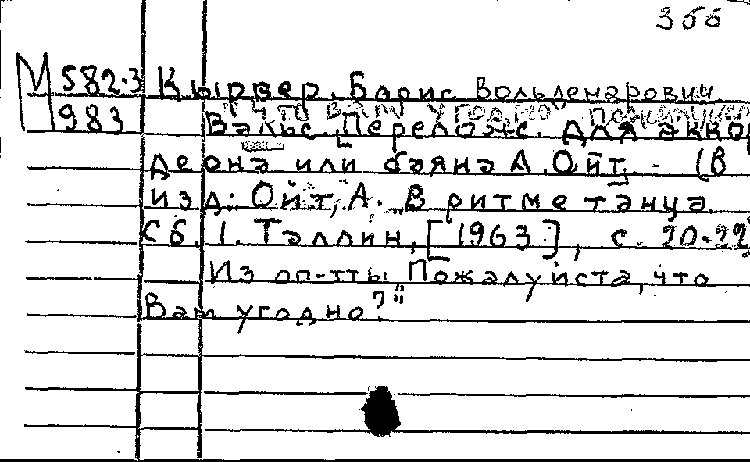 356
М 582.3 Кырвер, Борис Вольдемарович
983
Вальс. Перелож. для аккор
деона или баяна А. Ойт. - (В
изд: Ойт, А. В ритме танца.
Сб. 1. Таллин, [1963], с. 20-22
Из оп-тты "Пожалуйста, что
Вам угодно?"